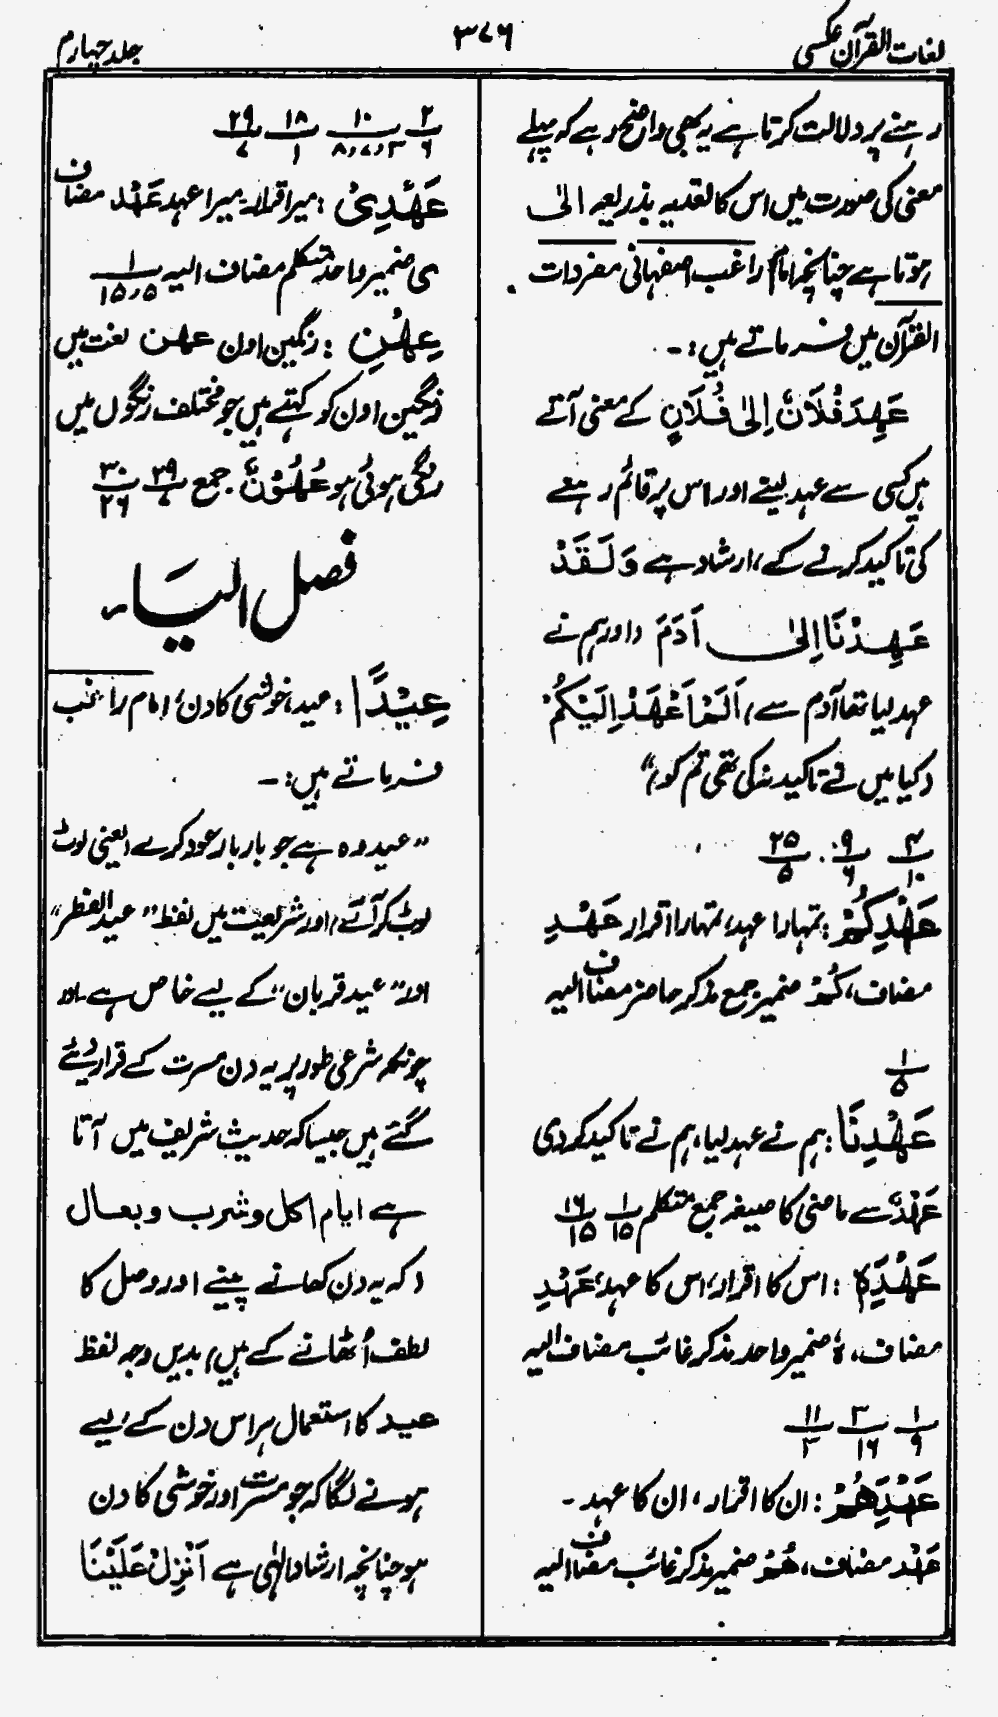 لغات القرآن عکسی
۳۷۶
جلد چہارم
رہنے پر دلالت کرتا ہے یہ بھی واضح رہے کہ پہلے
معنی کی صورت میں اس کا تعدیہ بذریعہ الیٰ
ہوتا ہے چنانچہ امام راغب اصفہانی مفردات
القرآن میں فرماتے ہیں :۔
عَہِدَ فُلَانٌ اِلیٰ فُلَانٍ کے معنی آتے
ہیں کسی سے عہد لینے اور اس پر قائم رہنے
کی تاکید کرنے کے، ارشاد ہے وَلَقَدْ
عَہِدْنَا اِلیٰ اٰدَمَ (اور ہم نے
عہد لیا تھا آدم سے، اَلَمْ اَعْھَدْ اِلَیْکُمْ
(کیا میں نے تاکید نہ کی تھی تم کو،"
۳/۱۰ ۹/۶ ۲۵/۵
عَھْدِکُمْ : تمہارا عہد، تمہارا اقرار عَھْدِ
مضاف، کُمْ ضمیر جمع مذکر حاضر مضاف الیہ
۱/۵
عَھِدْنَا : ہم نے عہد لیا، ہم نے تاکید کردی
عَھْدٌ سے ماضی کا صیغہ جمع متکلم ۱/۱۵ ۱۶/۱۵
عَھْدِہٖ : اس کا اقرار، اس کا عہد، عَہْدِ
مضاف، ہٖ ضمیر واحد مذکر غائب مضاف الیہ
۱/۹ ۳/۱۶ ۱۱/۳
عَھْدِھِمْ : ان کا اقرار، ان کا عہد۔
عَہْد مضاف، ھُمْ ضمیر مذکر غائب مضاف الیہ
۲/۶ ۱۰/۸،۷،۳ ۱۸/۱ ۲۹/۷
عَھْدِیْ : میرا قرار۔ میرا عہد عَھْد مضاف
ی ضمیر واحد متکلم مضاف الیہ ۱/۱۵،۵
عِھْنِ : رنگین اون عہن لغت میں
رنگین اون کو کہتے ہیں جو مختلف رنگوں میں
رنگی ہوئی ہو عُھُوْنٌ جمع ۲۹/۷ ۳۰/۲۶
فصل الیاء
عِیْدًا : عید، خوشی کا دن، امام راغب
فرماتے ہیں :۔
"عید وہ ہے جو بار بار عود کرے یعنی لوٹ
لوٹ کر آئے، اور شریعت میں لفظ "عید الفطر"
اور "عید قربان" کے لیے خاص ہے۔ اور
چونکہ شرعی طور پر یہ دن مسرت کے قرار دیئے
گئے ہیں جیسا کہ حدیث شریف میں آتا
ہے ایام اکل وشرب وبعال
(کہ یہ دن کھانے پینے اور وصل کا
لطف اُٹھانے کے ہیں) بدیں وجہ لفظ
عید کا استعمال ہر اس دن کے لیے
ہونے لگا کہ جو مسرت اور خوشی کا دن
ہو چنانچہ ارشاد الٰہی ہے اَنْزِلْ عَلَیْنَا